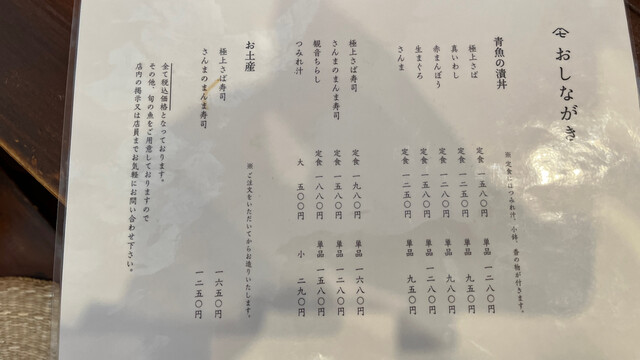 おしながき
青魚の漬丼 ※定食にはつみれ汁、小鉢、香の物が付きます。
極上さば 定食 一五八〇円 単品 一二八〇円
真いわし 定食 一二五〇円 単品 九五〇円
赤まんぼう 定食 一二八〇円 単品 九八〇円
生まぐろ 定食 一五八〇円 単品 一二八〇円
さんま 定食 一二五〇円 単品 九五〇円
極上さば寿司 定食 一九八〇円 単品 一六八〇円
さんまのまんま寿司 定食 一五八〇円 単品 一二八〇円
観音ちらし 定食 一八八〇円 単品 一五八〇円
つみれ汁 大 五〇〇円 小 二九〇円
お土産 ※ご注文をいただいてからお造りいたします。
極上さば寿司 一六五〇円
さんまのまんま寿司 一二五〇円
全て税込価格となっております。
その他、旬の魚をご用意しておりますので
店内の掲示又は店員までお気軽にお問い合わせ下さい。